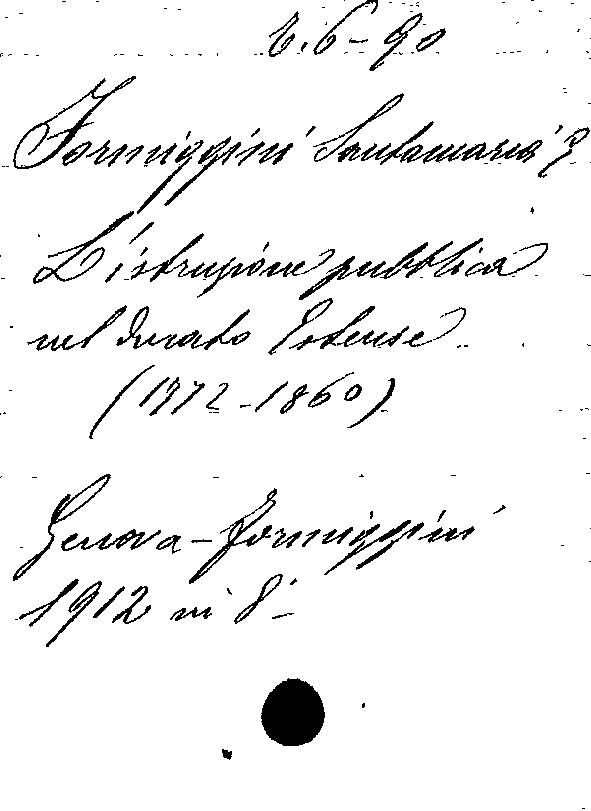 E.6-90
Formiggini Santamaria E
L'istruzione pubblica
nel ducato Estense
(1772-1860)
Genova - Formiggini
1912 in 8°